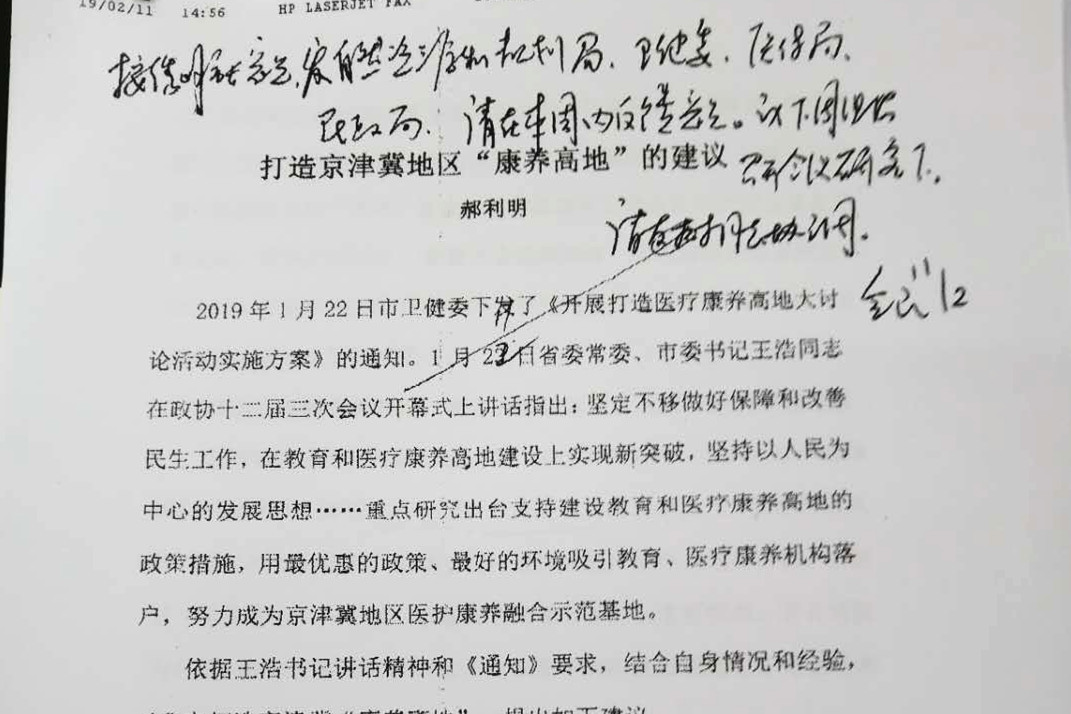 19/02/11 14:56 HP LASERJET FAX
局、卫健委、医保局、
民政局、请在本周内反馈意见。以下周
打造京津冀地区“康养高地”的建议
郝利明
请
11/2
2019年1月22日市卫健委下发了《开展打造医疗康养高地大讨
论活动实施方案》的通知。1月22日省委常委、市委书记王浩同志
在政协十二届三次会议开幕式上讲话指出：坚定不移做好保障和改善
民生工作，在教育和医疗康养高地建设上实现新突破，坚持以人民为
中心的发展思想……重点研究出台支持建设教育和医疗康养高地的
政策措施，用最优惠的政策、最好的环境吸引教育、医疗康养机构落
户，努力成为京津冀地区医护康养融合示范基地。
依据王浩书记讲话精神和《通知》要求，结合自身情况和经验，